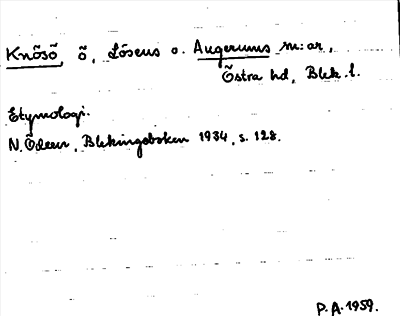 Knösö, ö, Lösens o. Augerums m:ar,
Östra hd, Blek. l.
Etymologi.
N. Ödeen, Blekingeboken 1934, s. 128.
P.A. 1959.